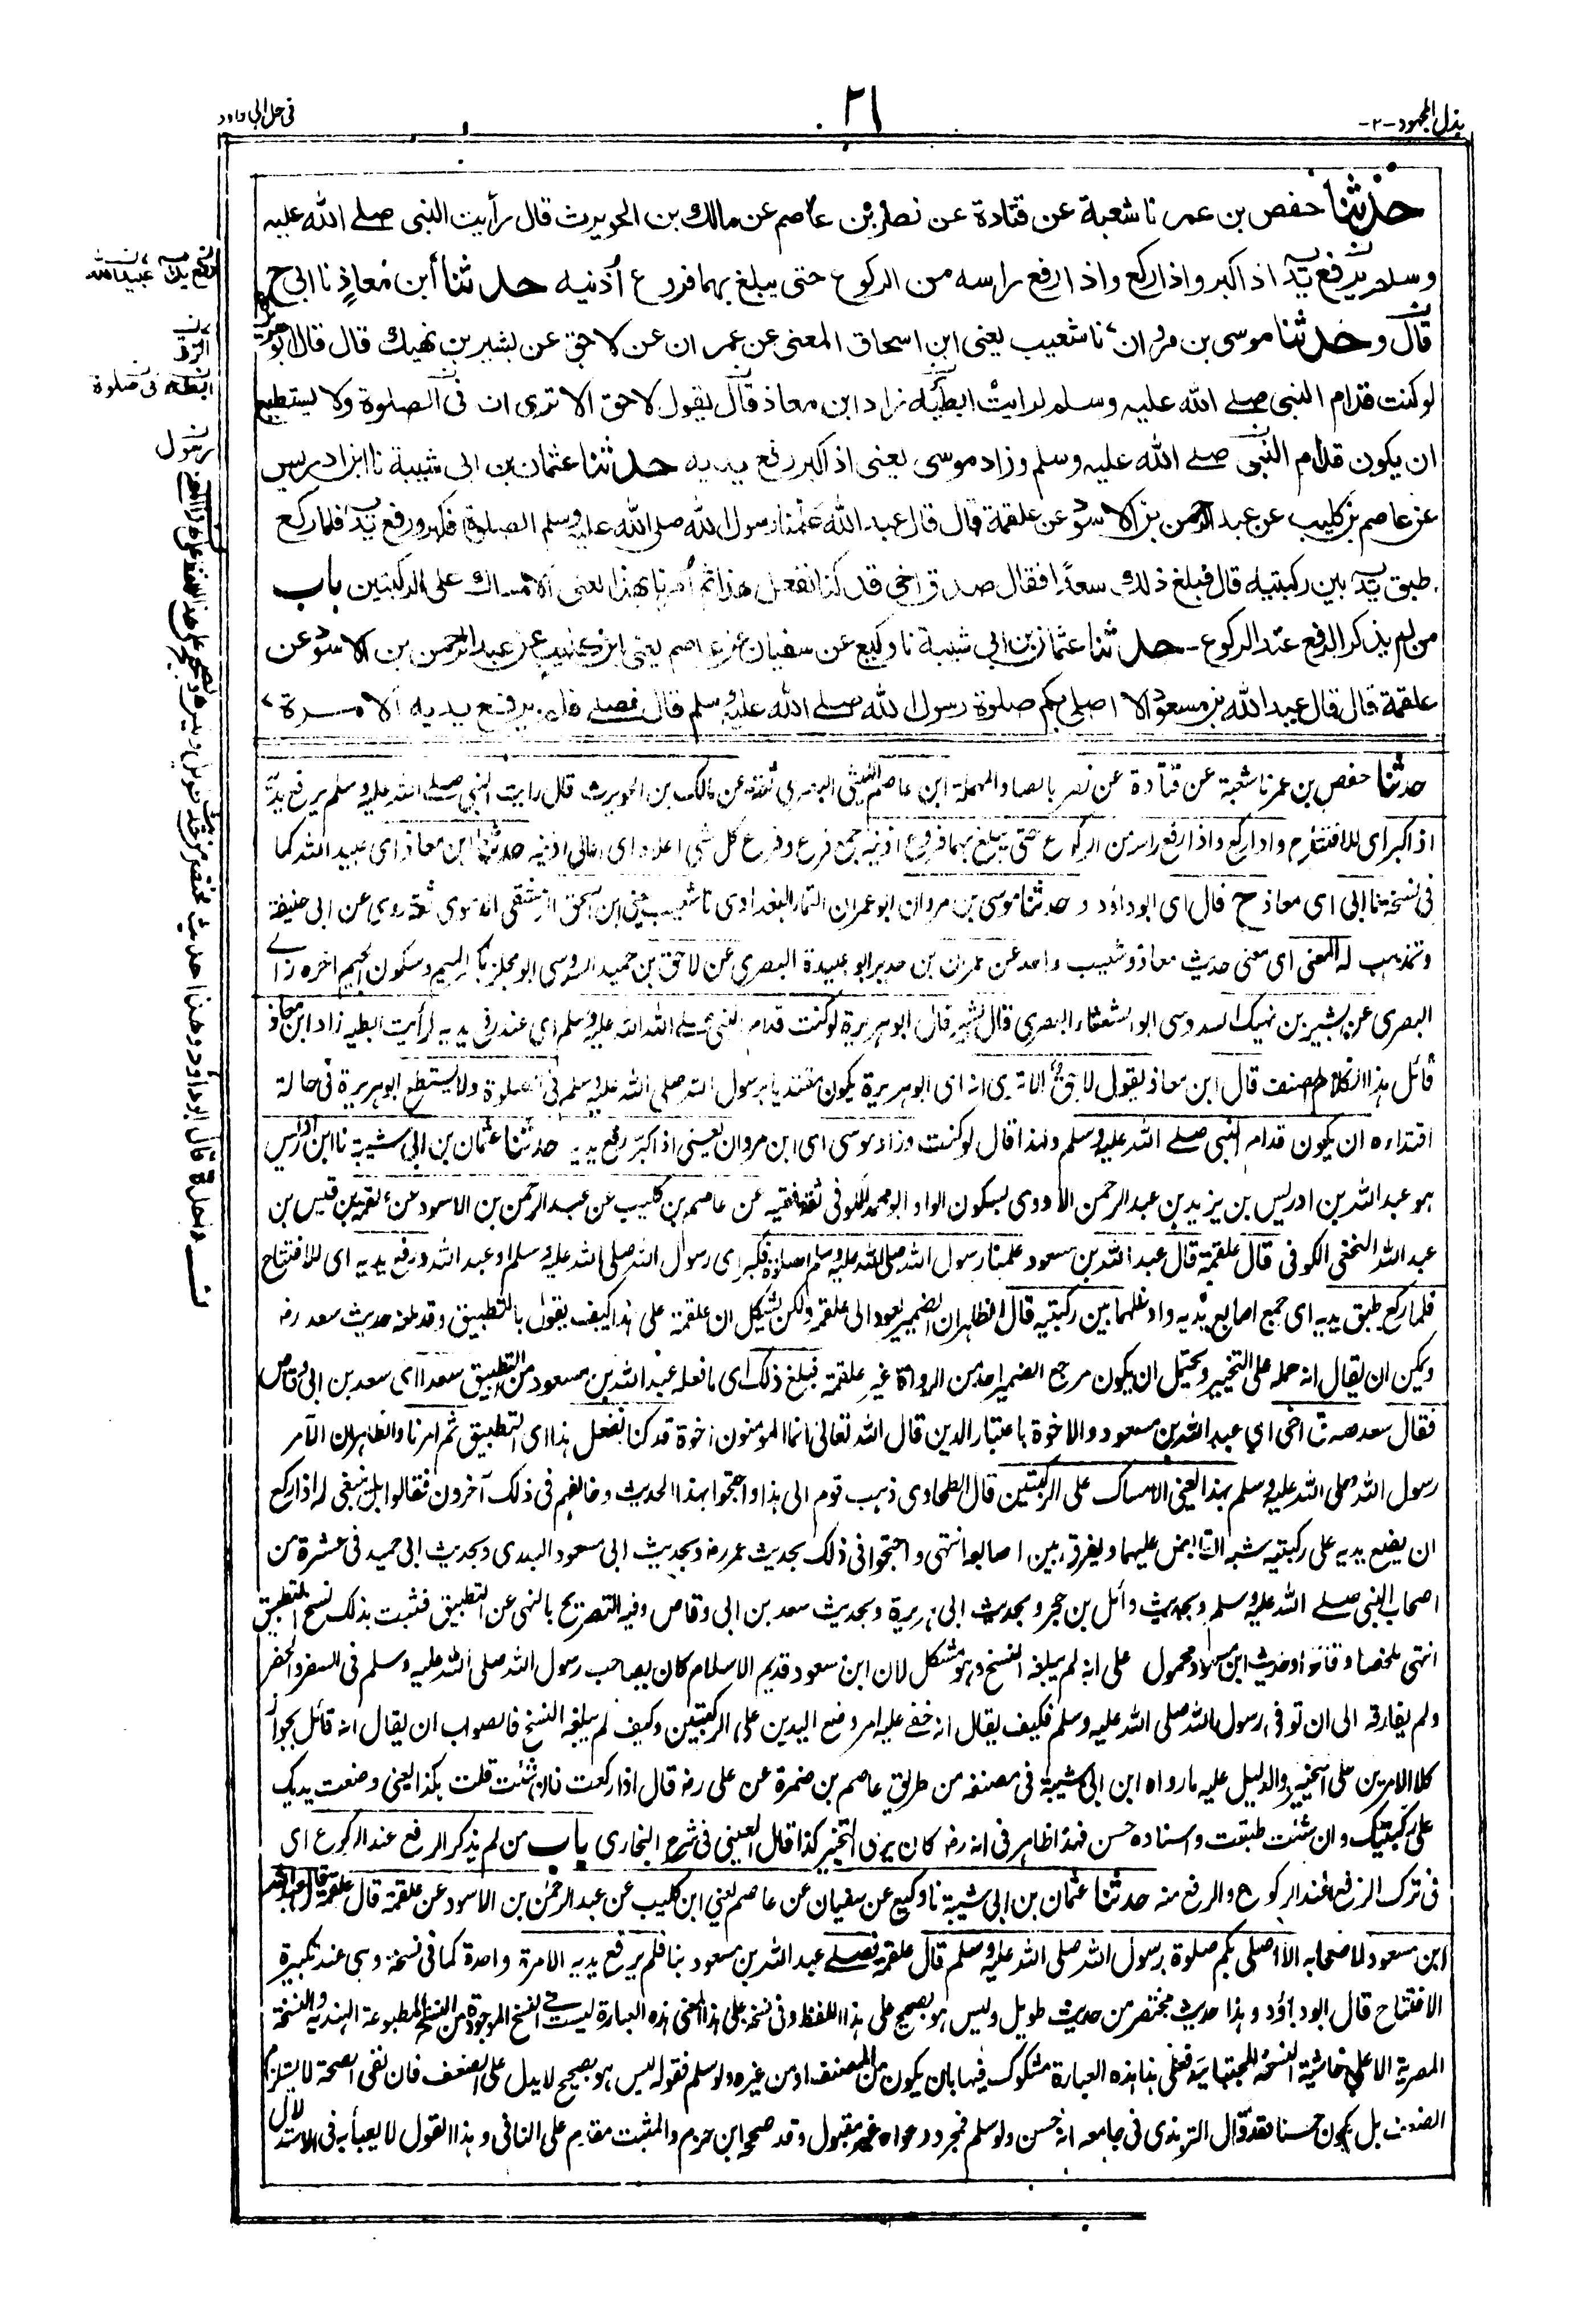 بذل المجهود -٢-
٢١
فى حل ابى داود
حدثنا حفص بن عمر نا شعبة عن قتادة عن نصر بن عاصم عن مالك بن الحويرث قال رأيت النبى صلے الله عليه
وسلم يرفع يديه اذا كبر واذا ركع واذا رفع راسه من الركوع حتى يبلغ بهما فروع أذنيه حدثنا أبن معاذٍ نا ابى ح
قال وحدثنا موسى بن مروان نا شعيب يعنى ابن اسحاق المعنى عن عمران عن لاحق عن بشير بن نهيك قال قال ابو هريرة
لو كنت قدام النبى صلے الله عليه وسلم لرايت ابطيه زاد ابن معاذ قال يقول لاحق الا ترى ان فى الصلوة ولا يستطيع
ان يكون قدام النبى صلے الله عليه وسلم وزاد موسى يعنى اذا كبر رفع يديه حدثنا عثمان بن ابى شيبة نا ابن ادريس
عن عاصم بن كليب عن عبد الرحمن بن الاسود عن علقمة قال قال عبد الله علمنا رسول الله صلى الله عليه وسلم الصلوة فكبر ورفع يديه فلما ركع
طبق يديه بين ركبتيه قال فبلغ ذلك سعدًا فقال صدق اخى قد كنا نفعل هذا ثم أمرنا بهذا يعنى الامساك على الركبتين باب
من لم يذكر الرفع عند الركوع - حدثنا عثمان بن ابى شيبة نا وكيع عن سفيان عن عاصم يعنى ابن كليب عن عبد الرحمن بن الاسود عن
علقمة قال قال عبد الله بن مسعود الا اصلى بكم صلوة رسول الله صلے الله عليه وسلم قال فصلے فلم يرفع يديه الا مرة
حدثنا حفص بن عمر نا شعبة عن قتادة عن نصر بالصاد المهملة ابن عاصم الليثى البصرى ثقة عن مالك بن الحويرث قال رايت النبى صلے الله عليه وسلم يرفع يديه
اذا كبر اى للافتتاح واذا ركع واذا رفع راسه من الركوع حتى يبلغ بهما فروع اذنيه جمع فرع وفرع كل شئ اعلاه اى اعالى اذنيه حدثنا ابن معاذ اى عبيد الله كما
فى نسخة نا ابى اى معاذ ح قال اى ابو داؤد وحدثنا موسى بن مروان ابو عمران التمار البغدادى نا شعيب يعنى ابن اسحق الدمشقى الاموى ثقة روى عن ابى حنيفة
وتمذهب له المعنى اى معنى حديث معاذ وشعيب واحد عن عمران بن حدير ابو عبيدة البصرى عن لاحق بن حميد السدوسى ابو مجلز بكسر الميم وسكون الجيم اخره زاے
البصرى عن بشير بن نهيك السدوسى ابو الشعثاء البصرى قال بشير قال ابو هريرة لو كنت قدام النبى صلے الله عليه وسلم اى عند رفع يديه لرأيت ابطيه زاد ابن معاذ
قائل هذا الكلام المصنف قال ابن معاذ يقول لاحق الا ترى انه اى ابو هريرة يكون مقتديا برسول الله صلى الله عليه وسلم فى الصلوة ولا يستطيع ابو هريرة فى حالة
اقتداءه ان يكون قدام النبى صلے الله عليه وسلم ولهذا قال لو كنت وزاد موسى اى ابن مروان يعنى اذا كبر رفع يديه حدثنا عثمان بن ابى شيبة نا ابن ادريس
هو عبد الله بن ادريس بن يزيد بن عبد الرحمن الاودى بسكون الواو ابو محمد الكوفى ثقة فقيه عن عاصم بن كليب عن عبد الرحمن بن الاسود عن علقمة بن قيس بن
عبد الله النخعى الكوفى قال علقمة قال عبد الله بن مسعود علمنا رسول الله صلى الله عليه وسلم الصلوة فكبر اى رسول الله صلى الله عليه وسلم او عبد الله ورفع يديه اى للافتتاح
فلما ركع طبق يديه اى جمع اصابع يديه وادخلهما بين ركبتيه قال الظاهر ان الضمير يعود الى علقمة ولكن يشكل ان علقمة على هذا كيف يقول بالتطبيق وقد بلغه حديث سعد رضه
ويمكن ان يقال انه حمله على التخيير ويحتمل ان يكون مرجع الضمير احد من الرواة غير علقمة فبلغ ذلك اى ما فعله عبد الله بن مسعود من التطبيق سعدا اى سعد بن ابى وقاص
فقال سعد صدق اخى اى عبد الله بن مسعود والاخوة باعتبار الدين قال الله تعالى انما المؤمنون اخوة قد كنا نفعل هذا اى التطبيق ثم امرنا والظاهر ان الآمر
رسول الله صلى الله عليه وسلم بهذا يعنى الامساك على الركبتين قال الطحاوى ذهب قوم الى هذا واحتجوا بهذا الحديث وخالفهم فى ذلك آخرون فقالوا بل ينبغى له اذا ركع
ان يضع يديه على ركبتيه شبه القابض عليهما ويفرق بين اصابعه انتهى واحتجوا فى ذلك بحديث عمر رضه وبحديث ابى مسعود البدرى وبحديث ابى حميد فى عشرة من
اصحاب النبى صلے الله عليه وسلم وبحديث وائل بن حجر وبحديث ابى هريرة وبحديث سعد بن ابى وقاص وفيه التصريح بالنهى عن التطبيق فثبت بذلك نسخ التطبيق
انتهى ملخصا وقالوا وحديث ابن مسعود محمول على انه لم يبلغه النسخ وهو مشكل لان ابن مسعود قديم الاسلام كان يصاحب رسول الله صلى الله عليه وسلم فى السفر والحضر
ولم يفارقه الى ان توفى رسول الله صلى الله عليه وسلم فكيف يقال انه خفى عليه امر وضع اليدين على الركبتين وكيف لم يبلغه النسخ فالصواب ان يقال انه قائل بجواز
كلا الامرين على التخيير والدليل عليه ما رواه ابن ابى شيبة فى مصنفه من طريق عاصم بن ضمرة عن على رضه قال اذا ركعت فان شئت قلت هكذا يعنى وضعت يديك
على ركبتيك وان شئت طبقت واسناده حسن فهذا ظاهر فى انه رضه كان يرى التخيير كذا قال العينى فى شرح البخارى باب من لم يذكر الرفع عند الركوع اى
فى ترك الرفع عند الركوع والرفع منه حدثنا عثمان بن ابى شيبة نا وكيع عن سفيان عن عاصم يعنى ابن كليب عن عبد الرحمٰن بن الاسود عن علقمة قال علقمة قال عبد الله
ابن مسعود لاصحابه الا اصلى بكم صلوة رسول الله صلى الله عليه وسلم قال علقمة فصلے عبد الله بن مسعود بنا فلم يرفع يديه الا مرة واحدة كما فى نسخة وهى عند تكبيرة
الافتتاح قال ابو داؤد وهذا حديث مختصر من حديث طويل وليس هو بصحيح على هذا اللفظ وفى نسخة على هذا المعنى هذه العبارة ليست فى النسخ الموجودة من النسخ المطبوعة الهندية والنسخة
المصرية الا على حاشية النسخة المجتبائية فعلى هذا هذه العبارة مشكوك فيها بان يكون من المصنف او من غيره ولو سلم فقوله ليس هو بصحيح لا يدل على الضعف فان نفى الصحة لا يستلزم
الضعف بل يكون حسنا فقد قال الترمذى فى جامعه انه حسن ولو سلم فمجرد دعواه غير مقبول وقد صححه ابن حزم والمثبت مقدم على النافى وهذا القول لا يعبأ به فى الاستدلال
ابطه فى صلوة
رسول
قال ابو داؤد وهذا حديث مختصر من حديث طويل وليس هو بصحيح على هذا